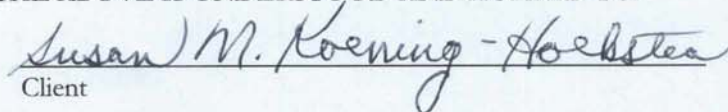 Susan M. Koening-Hoekstea
Client